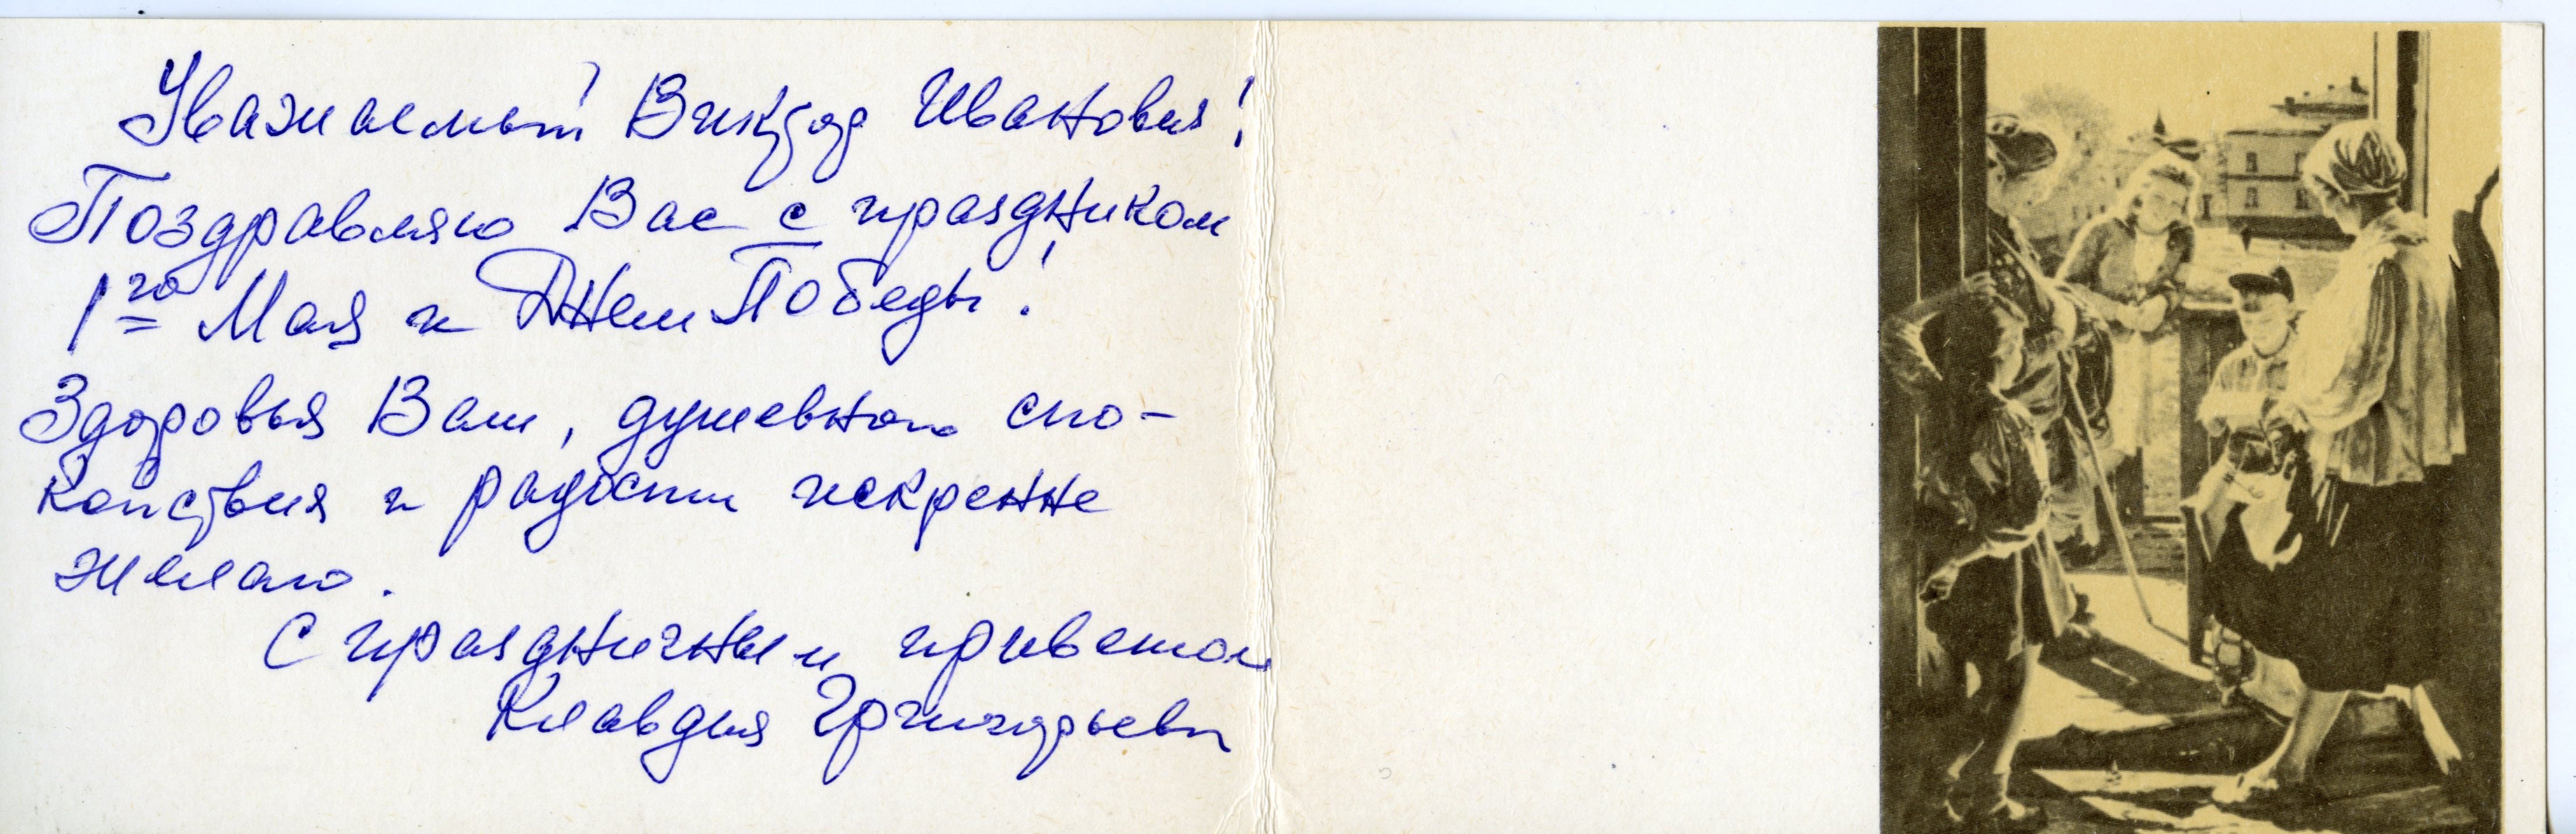 Уважаемый Виктор Иванович!
Поздравляю Вас с праздником
1го Мая и Днем Победы!
Здоровья Вам, душевного спо-
койствия и радости искренне
желаю.
С праздничным приветом
Клавдия Григорьевн